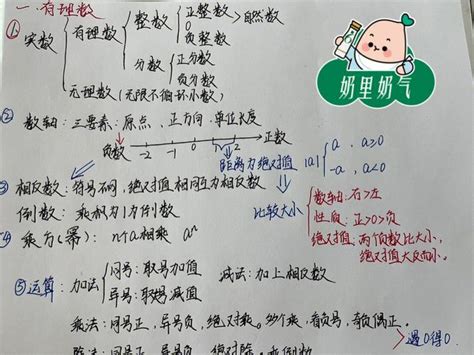 一. 有理数
①. 实数 有理数 整数 正整数 > 自然数
0
负整数
分数 正分数
负分数
无理数 (无限不循环小数)
奶里奶气
② 数轴: 三要素: 原点, 正方向, 单位长度
负数 -2 -1 0 1 2 正数
距离为绝对值 |a| a, a≥0
-a, a<0
③ 相反数: 符号不同, 绝对值相同互为相反数
倒数: 乘积为1为倒数
比较大小 数轴: 右>左
性质: 正>0>负
绝对值: 两个负数比大小,
绝对值大反而小.
④ 乘方(幂): n个a相乘 aⁿ
⑤ 运算: 加法 同号: 取号加值
异号: 取号减值
减法: 加上相反数
乘法: 同号正, 异号负, 绝对乘. 多个乘, 看负号, 奇负偶正.
遇0得0.
除法: 同号正, 异号负, 绝对除. 乘倒数